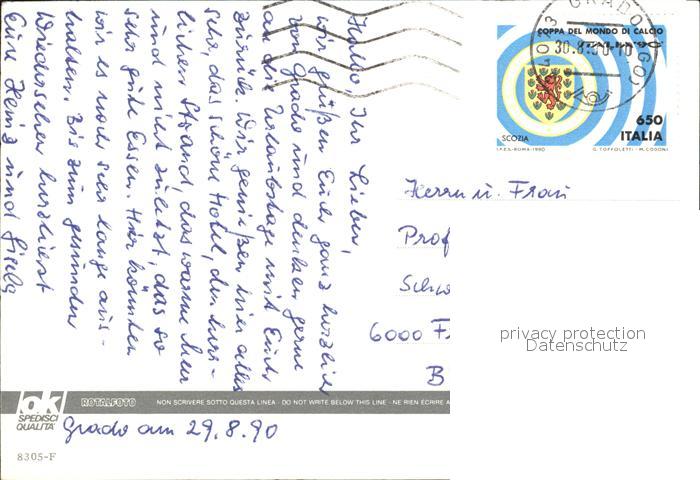 Hallo, Ihr Lieben,
wir grüßen Euch ganz herzlich
von Grado und denken gerne
an die Urlaubstage mit Euch
zurück. Wir genießen hier alles
sehr, das schöne Hotel, den
lichen Strand, das warme Meer
und nicht zuletzt, das so
sehr gute Essen. Hier könnten
wir es noch sehr lange aus-
halten. Bis zum gesunden
Wiedersehen herzliest
Eure Heinz und Gisela
Grado am 29.8.90
Herrn u. Frau
Prof
Schw
6000 F
B
COPPA DEL MONDO DI CALCIO
ITALIA '90
650
ITALIA
SCOZIA
I.P.Z.S.-ROMA-1990 G. TOFFOLETTI - M. CODONI
34073 GRADO (GO)
30.8.90-10
privacy protection
Datenschutz
ok
SPEDISCI
QUALITA'
ROTALFOTO
NON SCRIVERE SOTTO QUESTA LINEA - DO NOT WRITE BELOW THIS LINE - NE RIEN ÉCRIRE A
8305-F